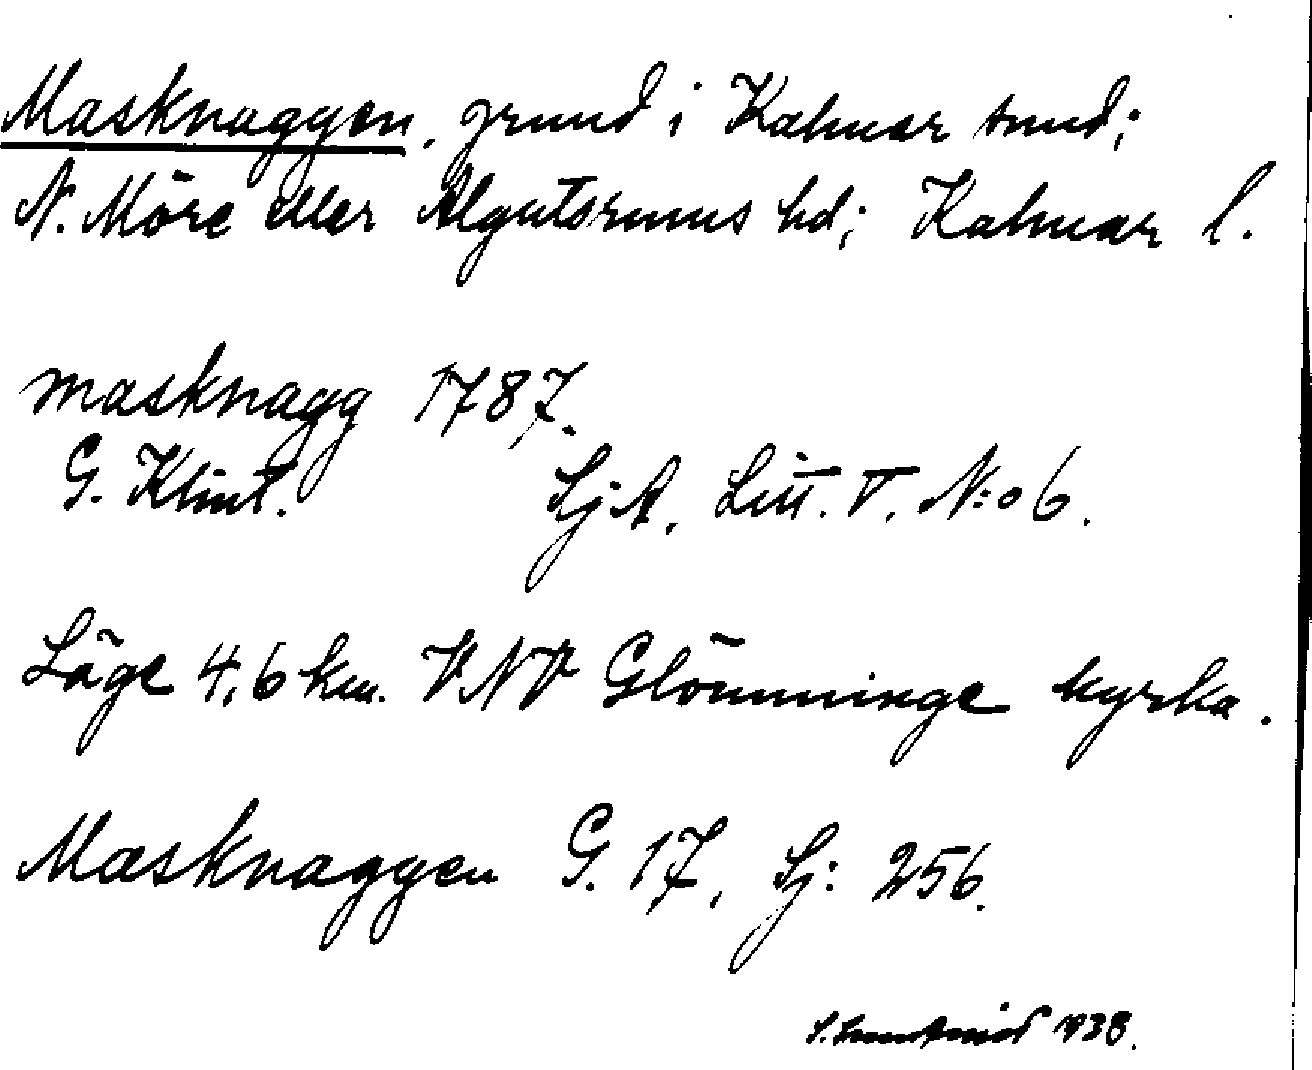 Masknaggen, grund i Kalmar sund;
N. Möre eller Algutsrums hd; Kalmar l.
masknagg 1787.
G. Klint. Sj.A. Litt. V. N:o 6.
Läge 4,6 km. VNV Glömminge kyrka.
Masknaggen G. 17, Sj: 256.
S. 1938.